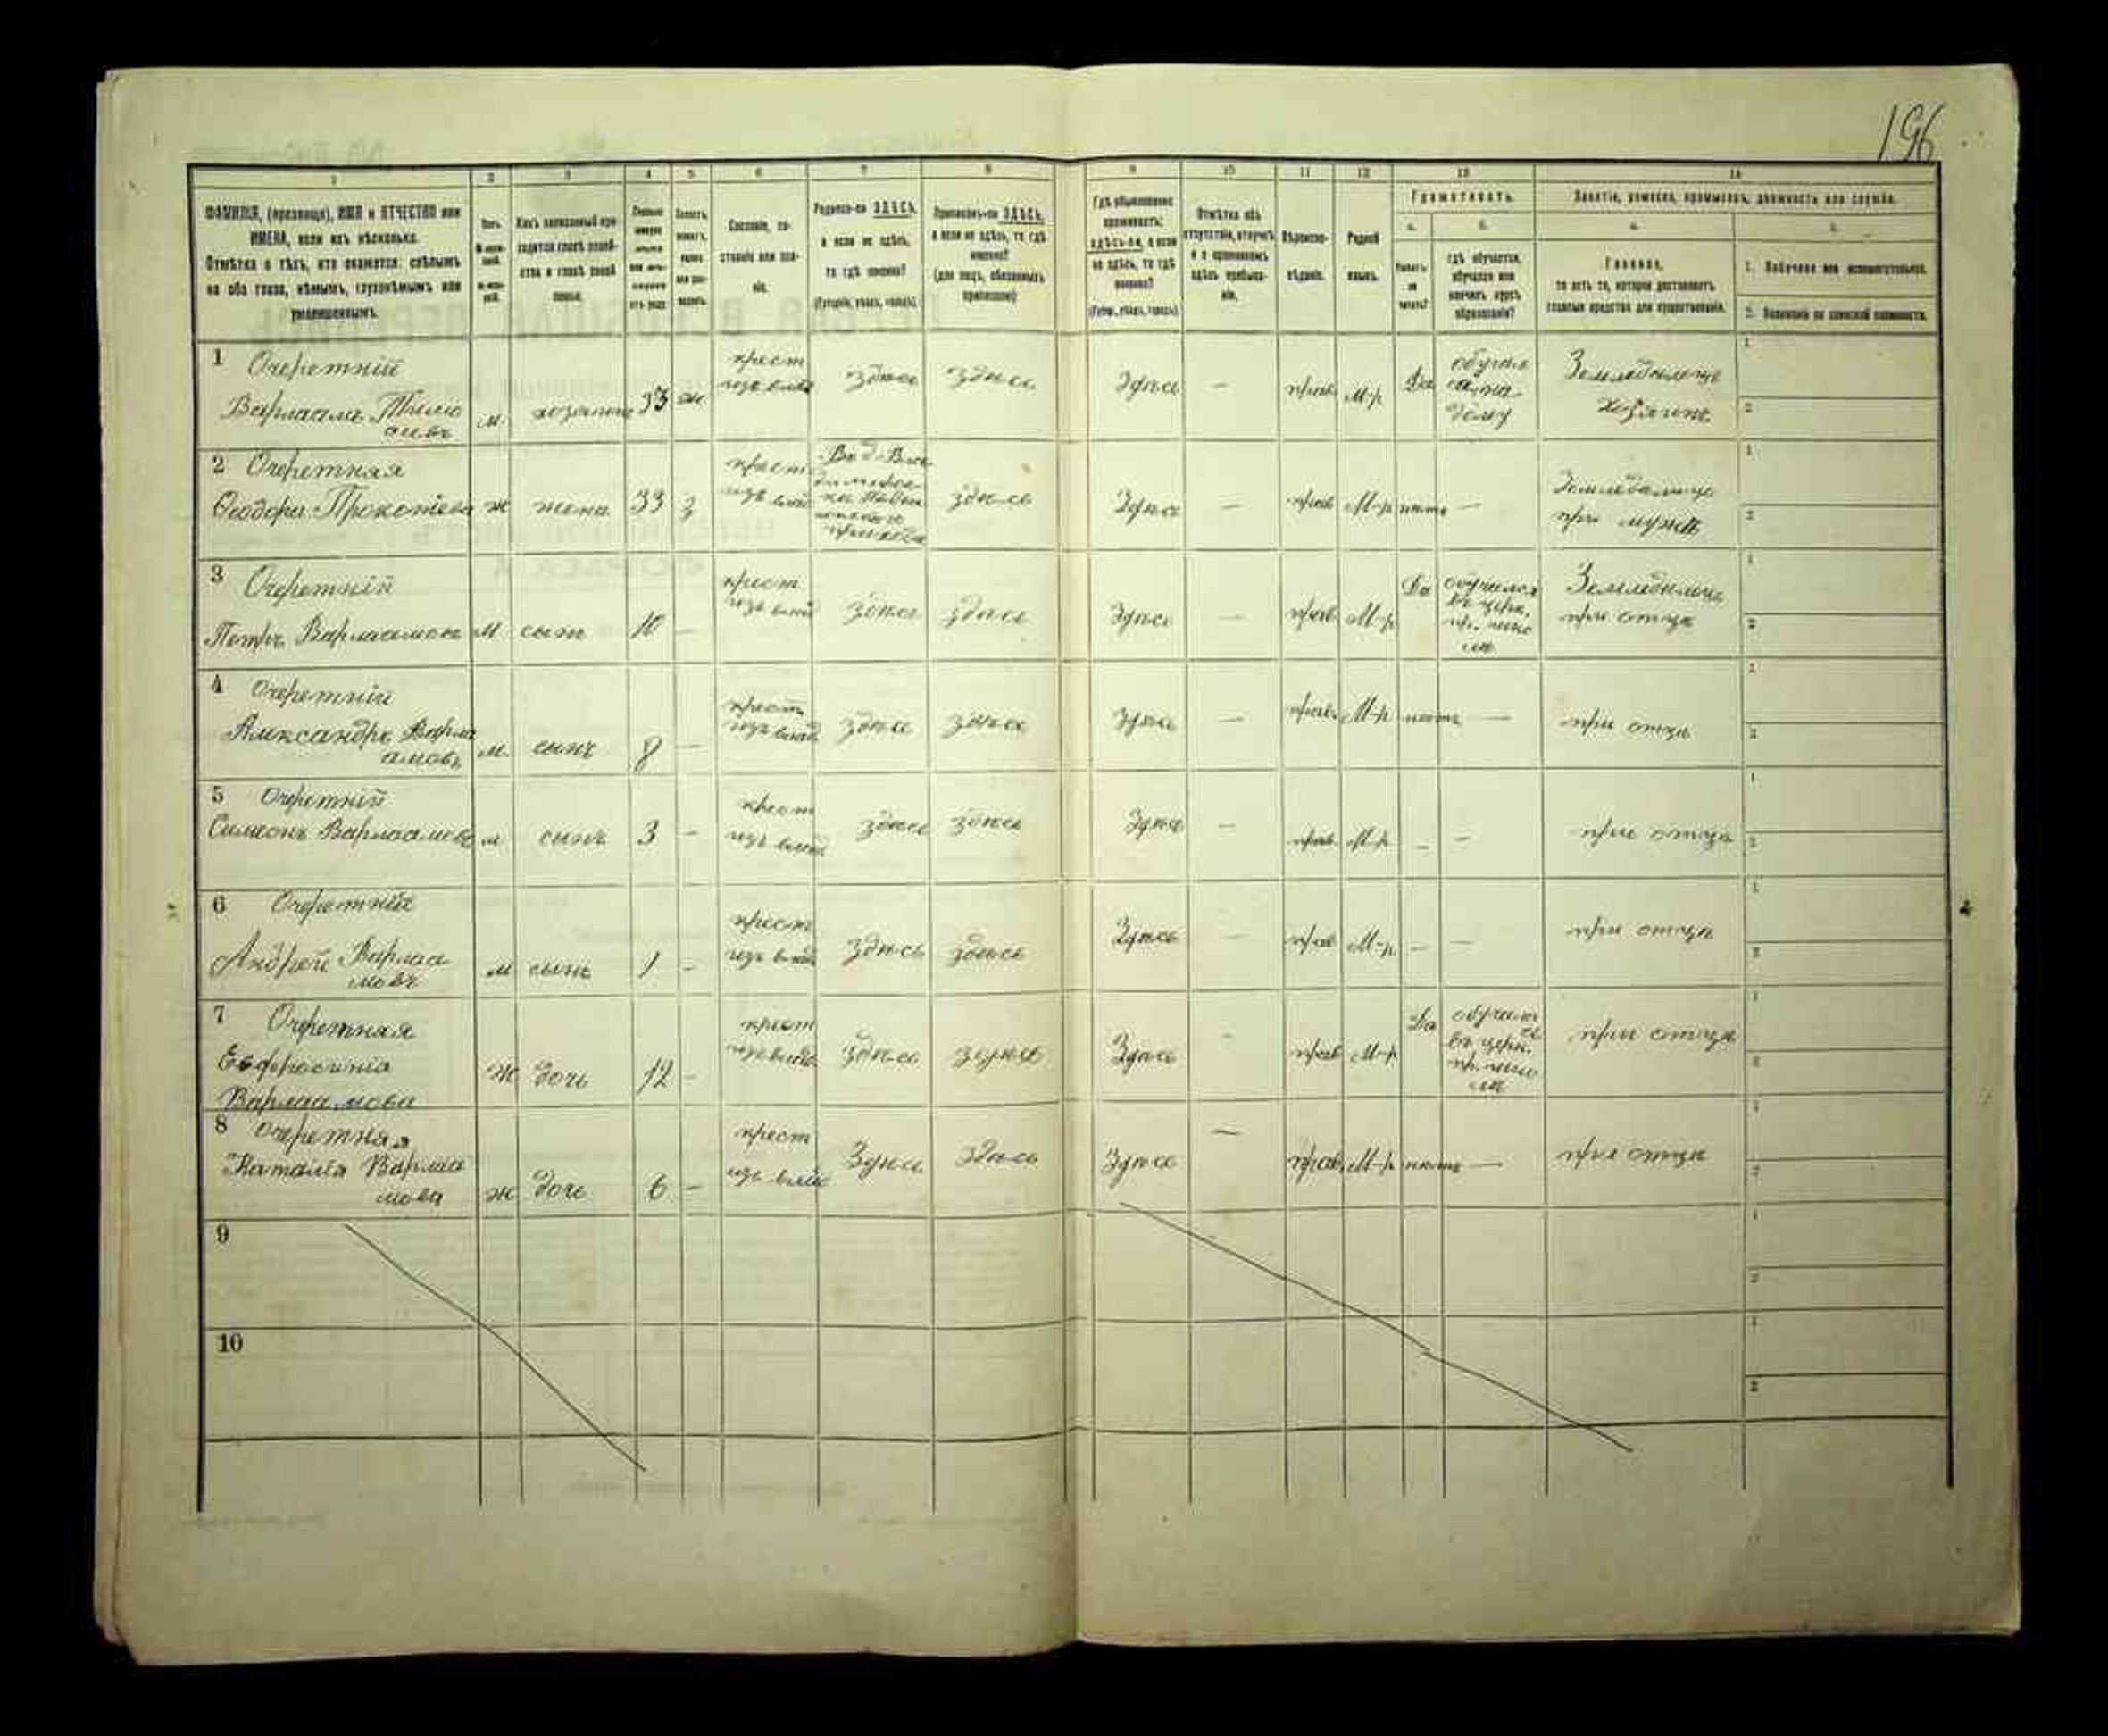 196
1 2 3 4 5 6 7 8 9 10 11 12 13 14
ФАМИЛІЯ, (прозвище), ИМЯ и ОТЧЕСТВО или
ИМЕНА, если ихъ нѣсколько.
Отмѣтка о тѣхъ, кто окажется: слѣпымъ
на оба глаза, нѣмымъ, глухонѣмымъ или
умалишеннымъ.
Полъ.
Какъ записанный при-
ходится главѣ хозяй-
ства и главѣ своей
семьи.
Сословіе, со-
стояніе или зва-
ніе.
Родился-ли ЗДѢСЬ,
а если не здѣсь,
то гдѣ именно?
(Губернія, уѣздъ, городъ).
Приписанъ-ли ЗДѢСЬ,
а если не здѣсь, то гдѣ
именно?
(для лицъ, обязанныхъ
припискою)
Гдѣ обыкновенно
проживаетъ:
здѣсь-ли, а если
не здѣсь, то гдѣ
именно?
(Губер., уѣздъ, городъ).
Отмѣтка объ
отсутствіи, отлучкѣ
и о временномъ
здѣсь пребыва-
ніи.
Вѣроиспо-
вѣданіе.
Родной
языкъ.
Грамотность.
а. б.
Умѣетъ-
ли
читать?
гдѣ обучается,
обучался или
кончилъ курсъ
образованія?
Занятіе, ремесло, промыселъ, должность или служба.
Главное,
то есть то, которое доставляетъ
главныя средства для существованія.
1. Побочное или вспомогательное.
2. Положеніе по воинской повинности.
1 Очеретній
Варлаамъ Тимо
м. хозяинъ 33 ж крест
изъ влад здѣсь здѣсь Здѣсь — прав М-р Да
дому
Земледѣлецъ
Хозяинъ
2 Очеретная
Ѳеодора Прокопіева ж жена 33 з крест
изъ влад
здѣсь Здѣсь — прав М-р нѣтъ —
при мужѣ
3 Очеретній
Петръ Варлаамовъ м сынъ 10 — крест
изъ влад здѣсь здѣсь Здѣсь — прав М-р Да обучался
въ церк.
пр. шко
лѣ
при отцѣ
4 Очеретній
Александръ Варла
амовъ м. сынъ 8 — крест
изъ влад здѣсь здѣсь Здѣсь — прав. М-р нѣтъ — при отцѣ
5 Очеретній
Симеонъ Варлаамовъ м сынъ 3 — крест
изъ влад здѣсь здѣсь Здѣсь — прав. М-р — — при отцѣ
6 Очеретній
Андрей Варлаа
мовъ м сынъ 1 - крест
изъ влад здѣсь здѣсь Здѣсь — прав М-р — — при отцѣ
7 Очеретная
Евфросинія
Варлаамова ж дочь 12 - крест
изъ влад здѣсь здѣсь Здѣсь - прав М-р Да
въ церк.
пр. шко
лѣ при отцѣ
8 Очеретная
Наталія Варлаа
мова ж дочь 6 — крест
изъ влад Здѣсь здѣсь Здѣсь — прав. М-р нѣтъ — при отцѣ
9
10